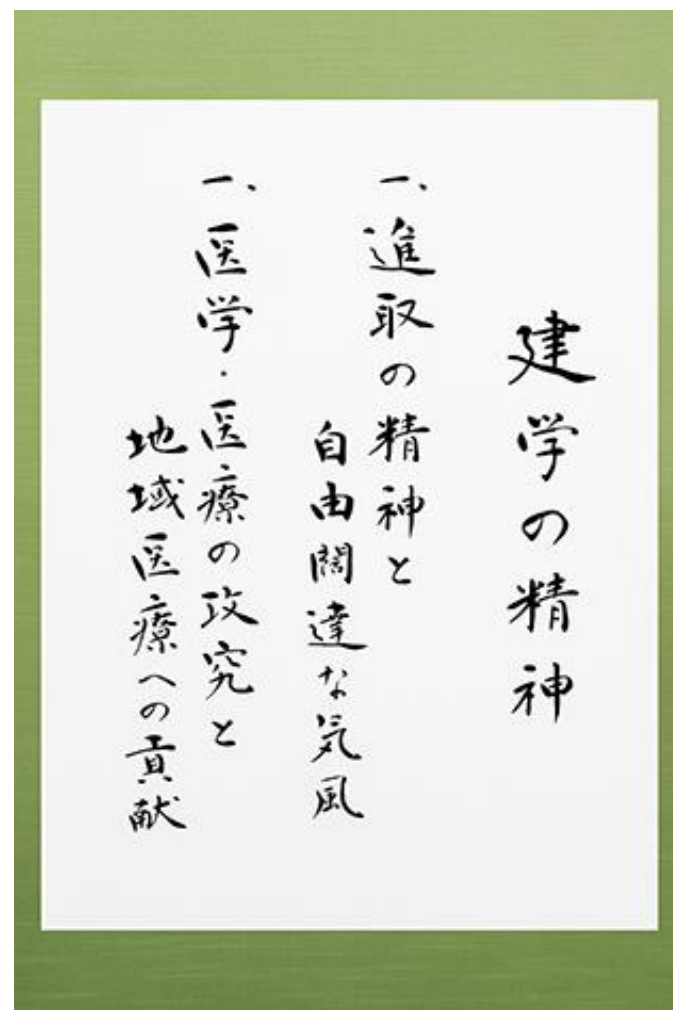 建学の精神
一、進取の精神と
自由闊達な気風
一、医学・医療の攻究と
地域医療への貢献